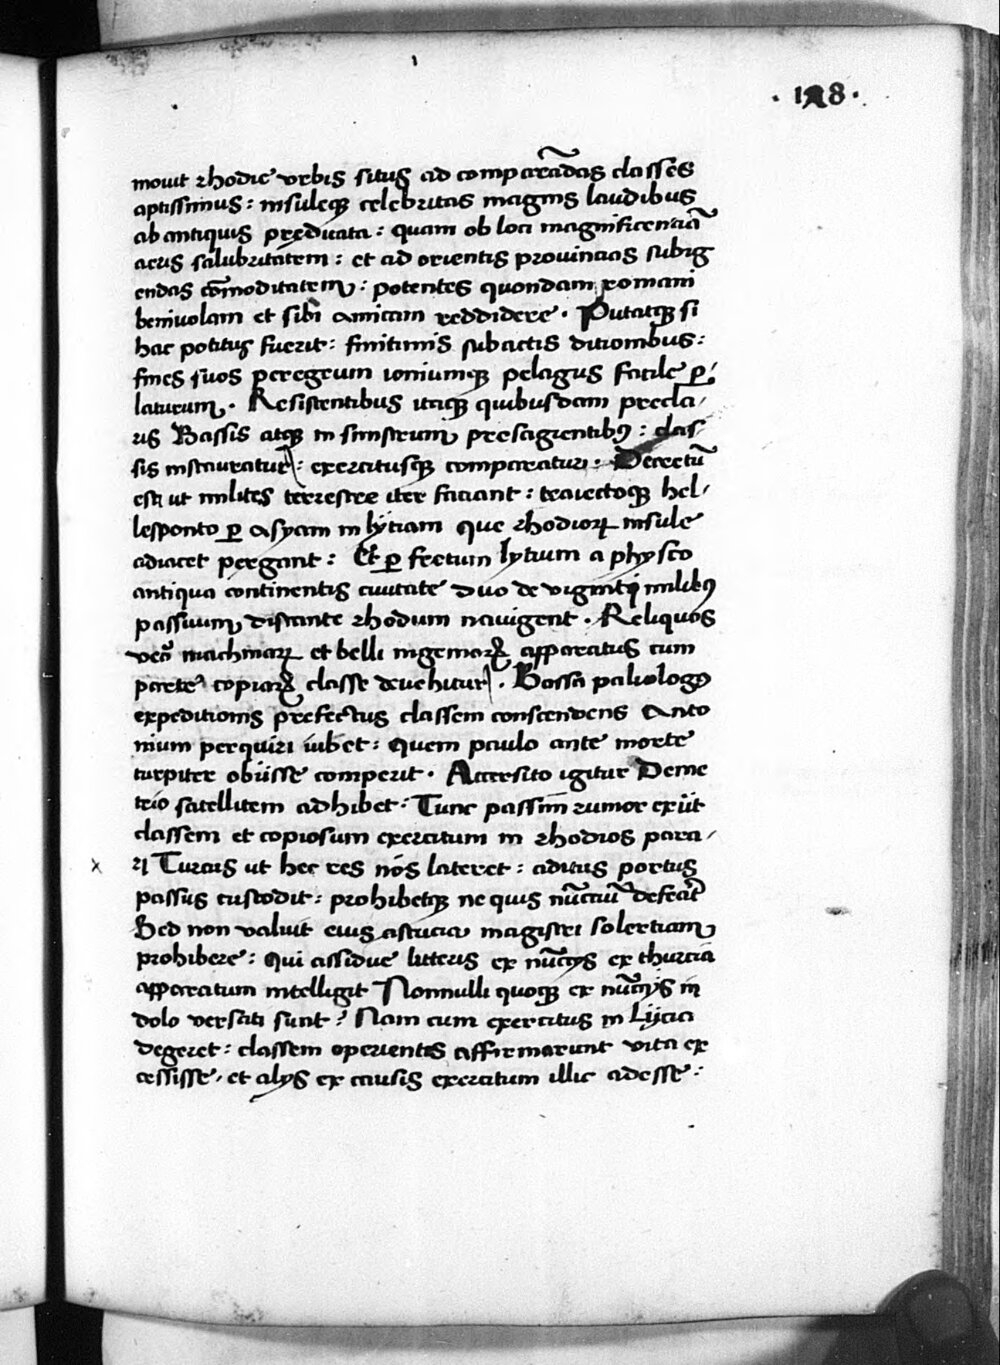 · 128 ·
mouit rhodie vrbis situs ad comparādas classes
aptissimus : insuleqꝫ celebritas magnis laudibus
ab antiquis predicata : quam ob loci magnificenciā
aeris salubritatem : et ad orientis prouincias subig
endas cōmoditatem : potentes quondam romani
beniuolam et sibi amicam reddidere · Putatqꝫ si
hac potitus fuerit : finitimis subactis ditionibus :
fines suos per egeum ioniumqꝫ pelagus facile ꝓ/
laturum · Resistentibus itaqꝫ quibusdam precla/
ris Bassis atqꝫ in sinistrum presagientibꝰ : clas/
sis instauratur : exercitusqꝫ comparatur : Decretū
est ut milites terrestre iter faciant : traiectoqꝫ hel/
lesponto ꝑ asyam in lÿciam que rhodioꝝ insule
adiacet pergant : Et ꝑ fectum lycium a physco
antiqua continentis ciuitate duo de viginti milibꝰ
passuum distante rhodum nauigent · Reliquos
vero machinaꝝ et belli ingenioꝝ apparatus cum
parte copiaꝝ classe deuehitur · Bassa paliologo
expeditionis prefectus classem conscendens Anto
nium perquiri iubet : quem paulo ante morte
turpiter obiisse comperit · Accersito igitur Deme
trio satellitem adhibet : Tunc passim rumor exiit
classem et copiosum exercitum in rhodios para/
x ri Turcus ut hec res nos lateret : aditus portus
passus custodit : prohibetqꝫ ne quis nūctiū defeāt
Sed non valuit eius astucia magistri solertiam
prohibere : Qui assidue litteris ex nūctys ex thurcia
apparatum intelligit Nonnulli quoqꝫ ex nūctys in
dolo versati sunt : Nam cum exercitus in Lÿcia
degeret : classem operientes affirmarunt vita ex
cessisse / et alys ex causis exercitum illic adesse :